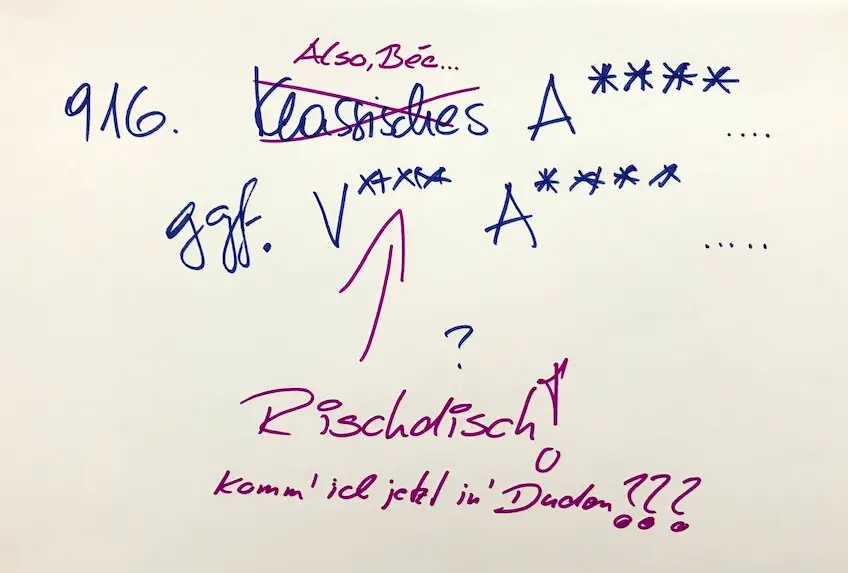 Also, Béc...
916. Klassisches A**** ....
ggf. V**** A**** .....
?
Rischdisch!
Komm' ich jetzt in' Duden???